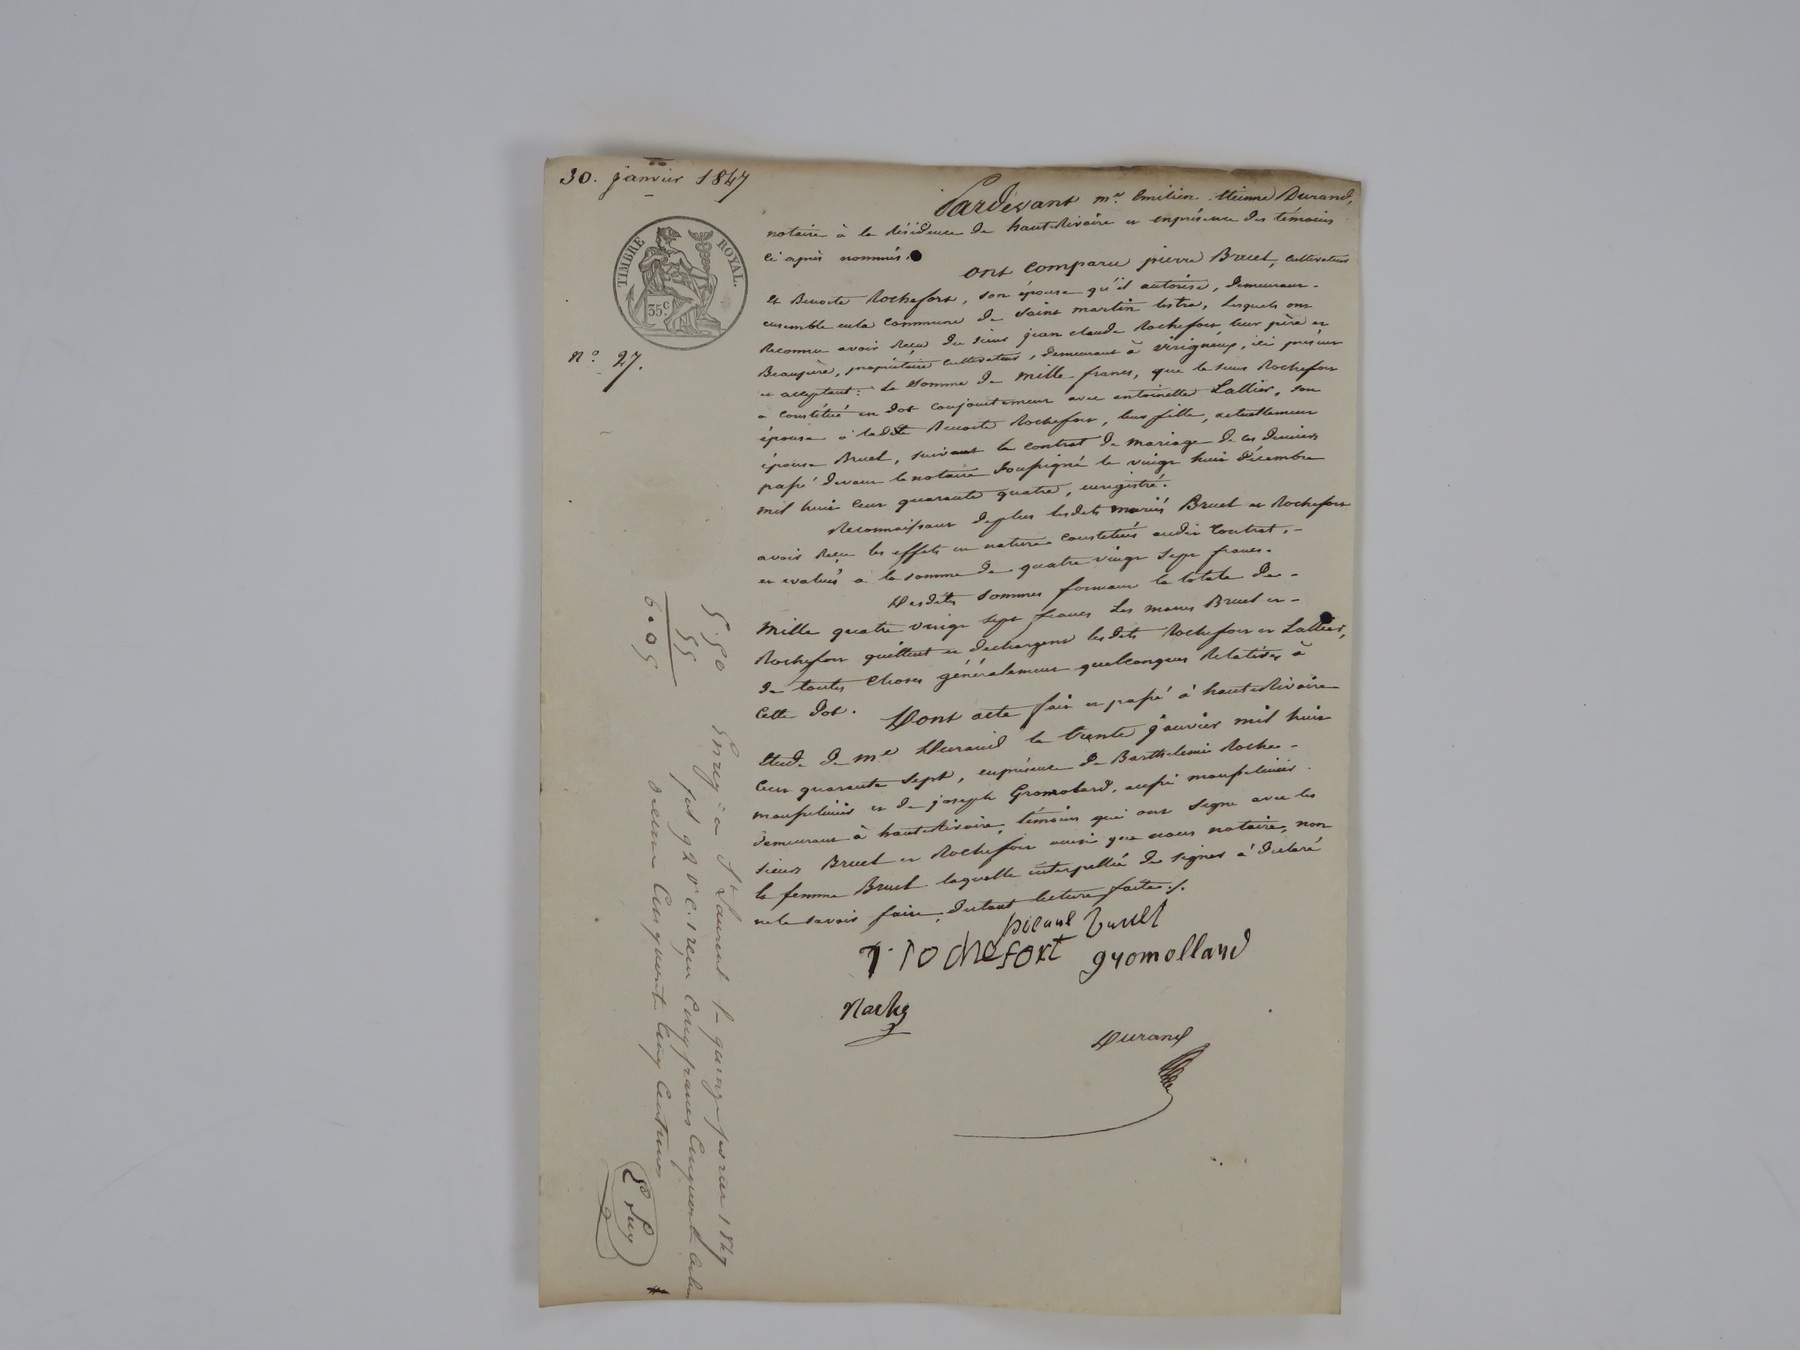 30. janvier 1847
TIMBRE ROYAL.
35c.
No. 27.
Pardevant me. Emilien Etienne Durand,
notaire à la résidence de hauterivoire et enprésence des témoins
ci après nommés.
ont comparu pierre Bruel, cultivateur
et Benoite Rochefort, son épouse qu'il autorise, demeurant
ensemble enla commune de saint martin lestra, lesquels ont
Reconnu avoir Reçu du sieur jean claude Rochefort, leur père et
Beaupère, propriétaire cultivateur, demeurant à virigneux, ici présent
et acceptant: la somme de mille francs, que le sieur Rochefort
a constitué en dot conjointement avec antoinette Lattier, son
épouse à ladite Benoite Rochefort, leur fille, actuellement
épouse Bruel, suivant le contrat de mariage de ces derniers
passé devant le notaire soussigné le vingt huit décembre
mil huit cent quarante quatre, enregistré.
Reconnaissant deplus lesdits mariés Bruel et Rochefort
avoir Reçu les effets en nature constitués audit contrat,
et evalués à la somme de quatre vingt sept francs.
Desdites sommes formant la totale de
mille quatre vingt sept francs Les mariés Bruel et
Rochefort quittent et dechargent lesdits Rochefort et Lattier,
de toutes choses généralement quelconques Relatives à
cette dot. Dont acte fait et passé à hauterivoire
étude de me Durand le trente janvier mil huit
cent quarante sept, enprésence de Barthelemi Roche
et de joseph Gromolard, aussi
demeurant à hauterivoire, témoins qui ont signé avec les
sieurs Bruel et Rochefort ainsi que nous notaire, non
la femme Bruel laquelle interpellée de signer à déclaré
ne le savoir faire, dutout lecture faite./.
Bruel
rochefort gromollard
Durand
5.50
55
6.05
Enregé à St Laurent le quinze fevrier 1847
fol 92 vo c. 1 reçu cinq francs cinquante cent
decime cinquante cinq centimes